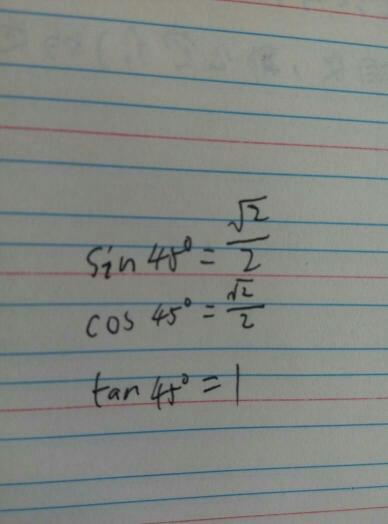 sin 45° = √2/2
cos 45° = √2/2
tan 45° = 1